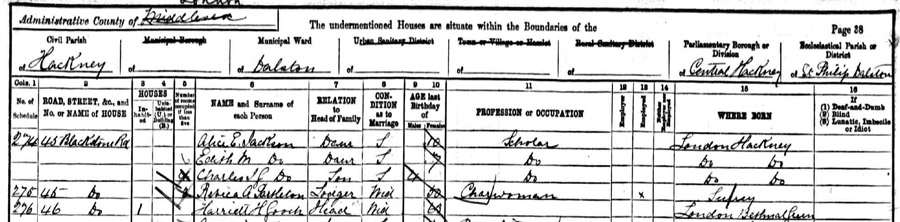 London
Administrative County of Middlesex
The undermentioned Houses are situate within the Boundaries of the
Page 38
Civil Parish
Municipal Borough
Municipal Ward
Urban Sanitary District
Town or Village or Hamlet
Rural Sanitary District
Parliamentary Borough or Division
Ecclesiastical Parish or District
of Hackney
of
of Dalston
of
of
of
of Central Hackney
of St. Philip Dalston
Cols. 1 2 3 4 5 6 7 8 9 10 11 12 13 14 15 16
No. of Schedule
ROAD, STREET, &c., and No. or NAME of HOUSE
HOUSES
Inhabited
Uninhabited (U.) or Building (B.)
Number of rooms occupied if less than five
NAME and Surname of each Person
RELATION to Head of Family
CONDITION as to Marriage
AGE last Birthday of
Males
Females
PROFESSION or OCCUPATION
Employer
Employed
WHERE BORN
(1) Deaf-and-Dumb
(2) Blind
(3) Lunatic, Imbecile or Idiot
274 45 Blackstone Rd Alice E. Jackson Daur S 10 Scholar London Hackney
Edith M Do Daur S Do Do Do
Charles Do Son S Do Do Do
275 45 Do Lodger Wid Charwoman x Surrey
276 46 Do 1 Harriett H Gooch Head Wid London Bethnal Green